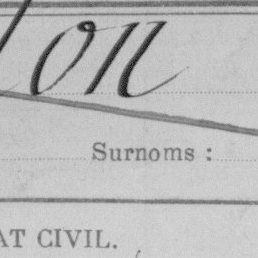 on
Surnoms :
AT CIVIL.